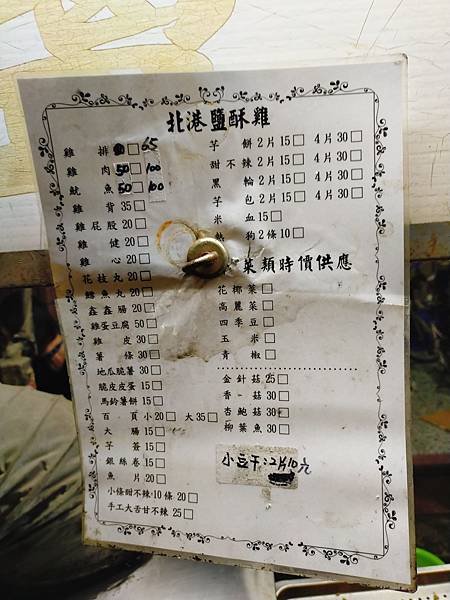 北港鹽酥雞
雞排 65
雞肉 50 100
魷魚 50 100
雞背 35
雞屁股 20
雞健 20
雞心 20
花枝丸 20
鱈魚丸 20
鑫鑫腸 20
雞蛋豆腐 50
雞皮 30
薯條 30
地瓜脆薯 30
脆皮皮蛋 15
馬鈴薯餅 15
百頁 小20 大35
大腸 15
芋簽 15
銀絲卷 15
魚片 20
小條甜不辣·10條 20
手工大舌甘不辣 25
芋餅 2片15 4片30
甜不辣 2片15 4片30
黑輪 2片15 4片30
芋包 2片15 4片30
米血 15
狗 2條10
菜類時價供應
花椰菜
高麗菜
四季豆
玉米
青椒
金針菇 25
香菇 30
杏鮑菇 30
柳葉魚 30
小豆干:2片10元